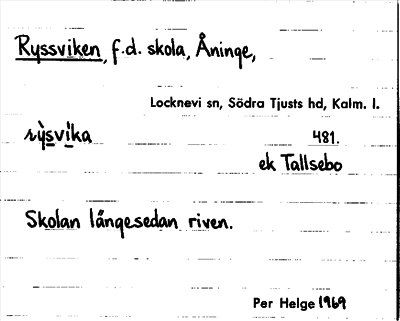 Ryssviken, f.d. skola, Åninge,
Locknevi sn, Södra Tjusts hd, Kalm. l.
rỳsvi̱ka 481.
ek Tallsebo
Skolan längesedan riven.
Per Helge 1969